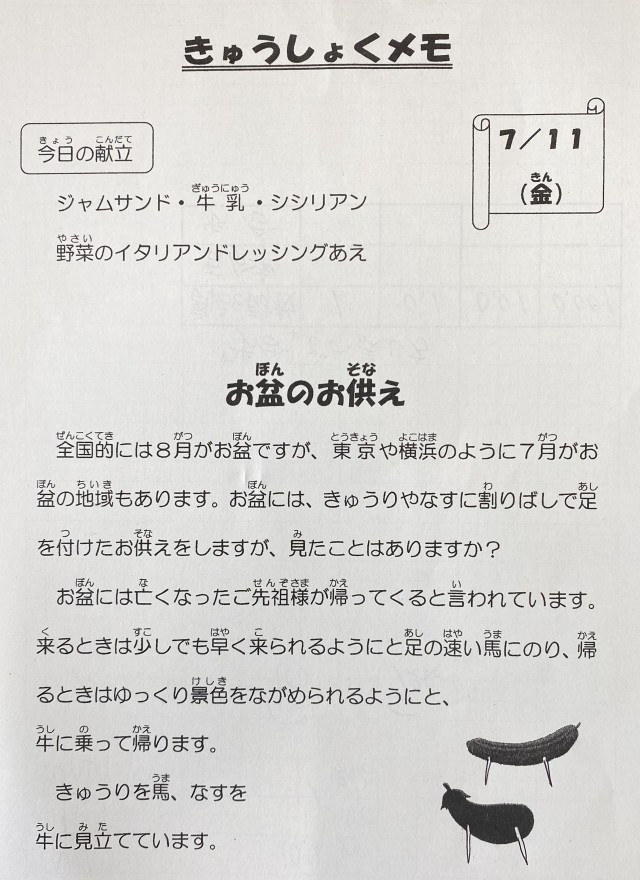 きゅうしょくメモ
今日の献立
7／11
（金）
ジャムサンド・牛乳・シシリアン
野菜のイタリアンドレッシングあえ
お盆のお供え
全国的には８月がお盆ですが、東京や横浜のように７月がお
盆の地域もあります。お盆には、きゅうりやなすに割りばしで足
を付けたお供えをしますが、見たことはありますか？
お盆には亡くなったご先祖様が帰ってくると言われています。
来るときは少しでも早く来られるようにと足の速い馬にのり、帰
るときはゆっくり景色をながめられるようにと、
牛に乗って帰ります。
きゅうりを馬、なすを
牛に見立てています。